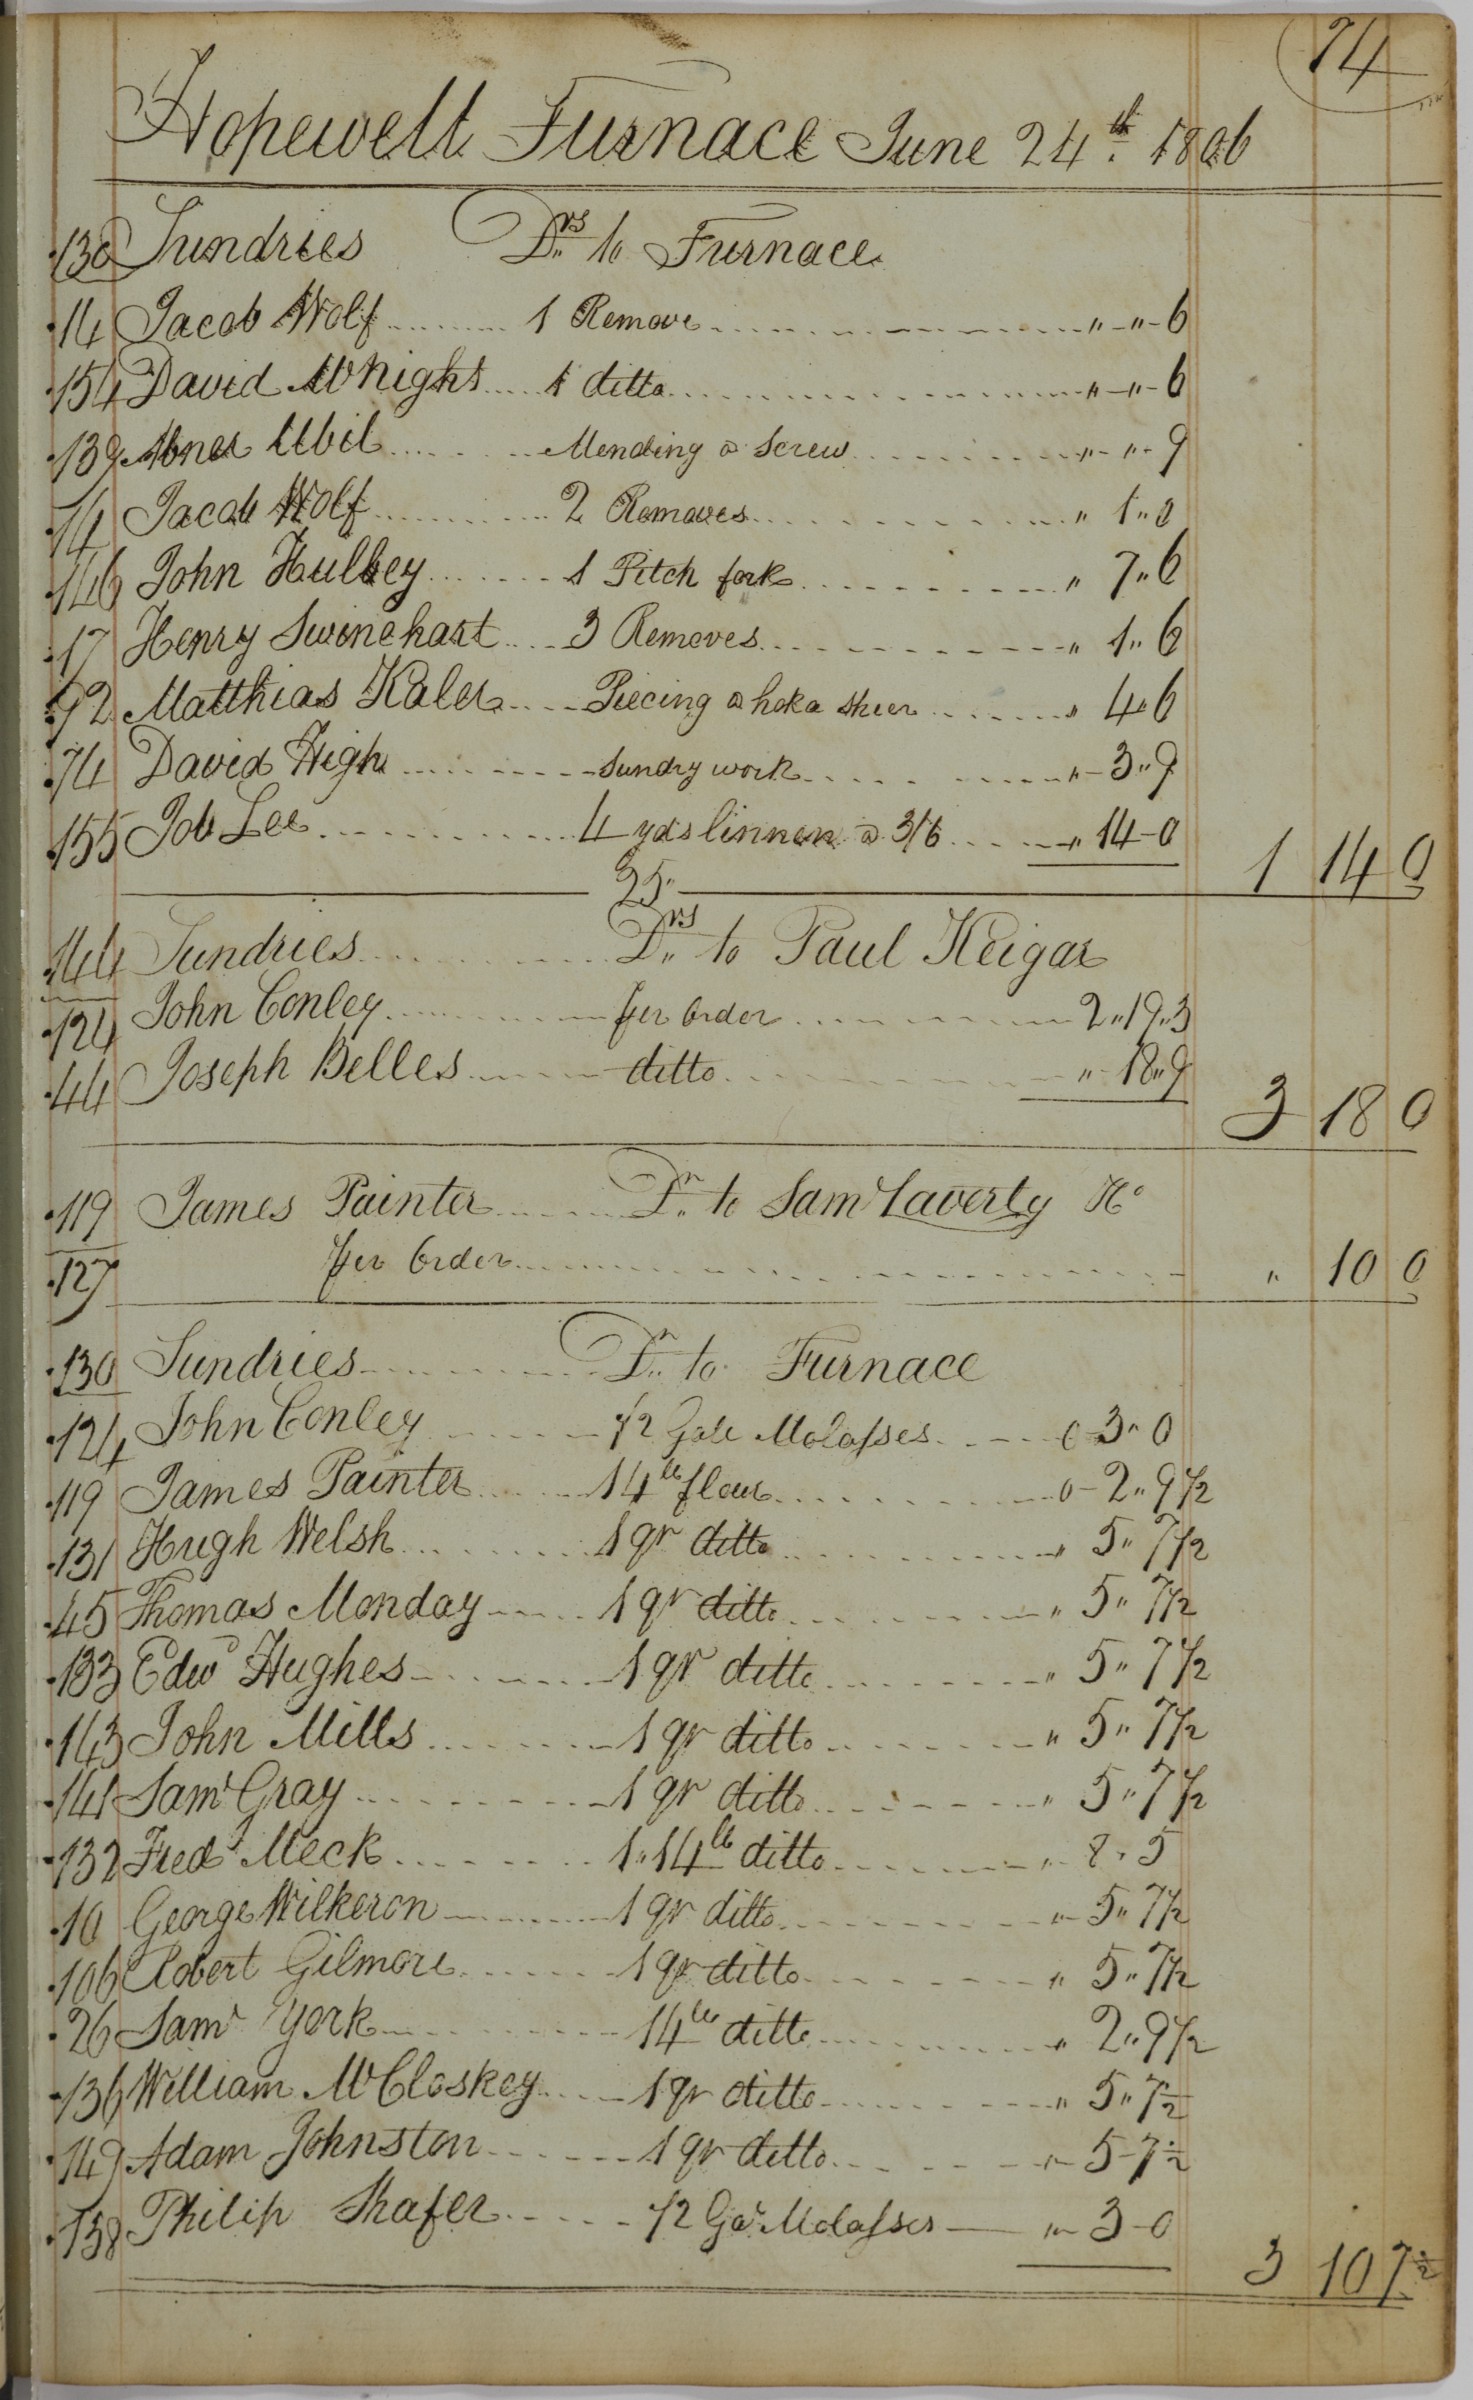 74
Hopewell Furnace June 24th 1806
130 Sundries Drs to Furnace
14 Jacob Wolf 1 Remove " - " - 6
154 David McKnight 1 ditto " - " - 6
139 Abner Mending a Screw " - " - 9
14 Jacob Wolf 2 Removes " 1 " 0
146 John Hulbey 1 Pitch fork " 7 " 6
17 Henry Swinehart 3 Removes " 1 " 6
92 Matthias Kaler Piecing a " 4 " 6
74 David High Sundry work " - 3 " 9
155 Job Lee 4 yds linnen @ 3/6 " 14 - 0 1 14 0
25"
144 Sundries Drs to Paul Keigar
124 John Conley per Order 2 " 19 " 3
44 Joseph Belles ditto " 18 " 9
3 18 0
119 James Painter Dr to Saml Laverty
127 per Order " 10 0
130 Sundries Dr to Furnace
124 John Conley 1/2 Gall Molasses 0 3 " 0
119 James Painter 14 lb flour 0 - 2 " 9 1/2
131 Hugh Welsh 1 qr ditto " 5 " 7 1/2
45 Thomas Monday 1 qr ditto " 5 " 7 1/2
133 Edwd Hughes 1 qr ditto " 5 " 7 1/2
143 John Mills 1 qr ditto " 5 " 7 1/2
141 Saml Gray 1 qr ditto " 5 " 7 1/2
132 Fredk Meck 1 " 14 lb ditto " 8 " 5
10 George Wilkeron 1 qr ditto " 5 " 7 1/2
106 Robert Gilmore 1 qr ditto " 5 " 7 1/2
26 Saml York 14 lb ditto " 2 " 9 1/2
136 William McCloskey 1 qr ditto " 5 " 7 1/2
149 Adam Johnston 1 qr ditto " 5 - 7 1/2
138 Philip Shafer 1/2 Gal Molasses " 3 - 0
3 10 7 1/2